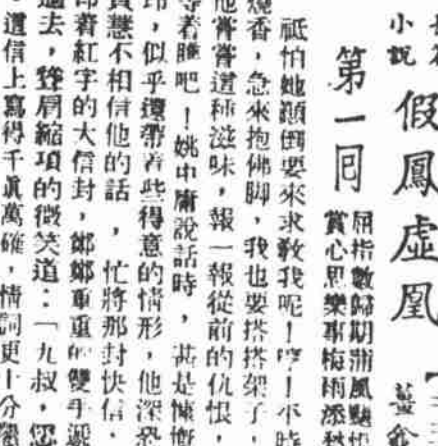 小說
假鳳虛凰
第一回
屈指數歸期蒲風颺
賞心思樂事梅雨添
祇怕她顛倒要來求教我呢！哼！不時
燒香，急來抱佛脚，我也要搭搭架子，
他嘗嘗這種滋味，報一報從前的仇恨，
等着睡吧！姚中庸說話時，甚是慷慨
昂，似乎還帶着些得意的情形，他深恐
賢慧不相信他的話，忙將那封快信，
印着紅字的大信封，鄭鄭重重的雙手遞
過去，聳肩縮項的微笑道：「九叔，您
這信上寫得千眞萬確，情詞更十分